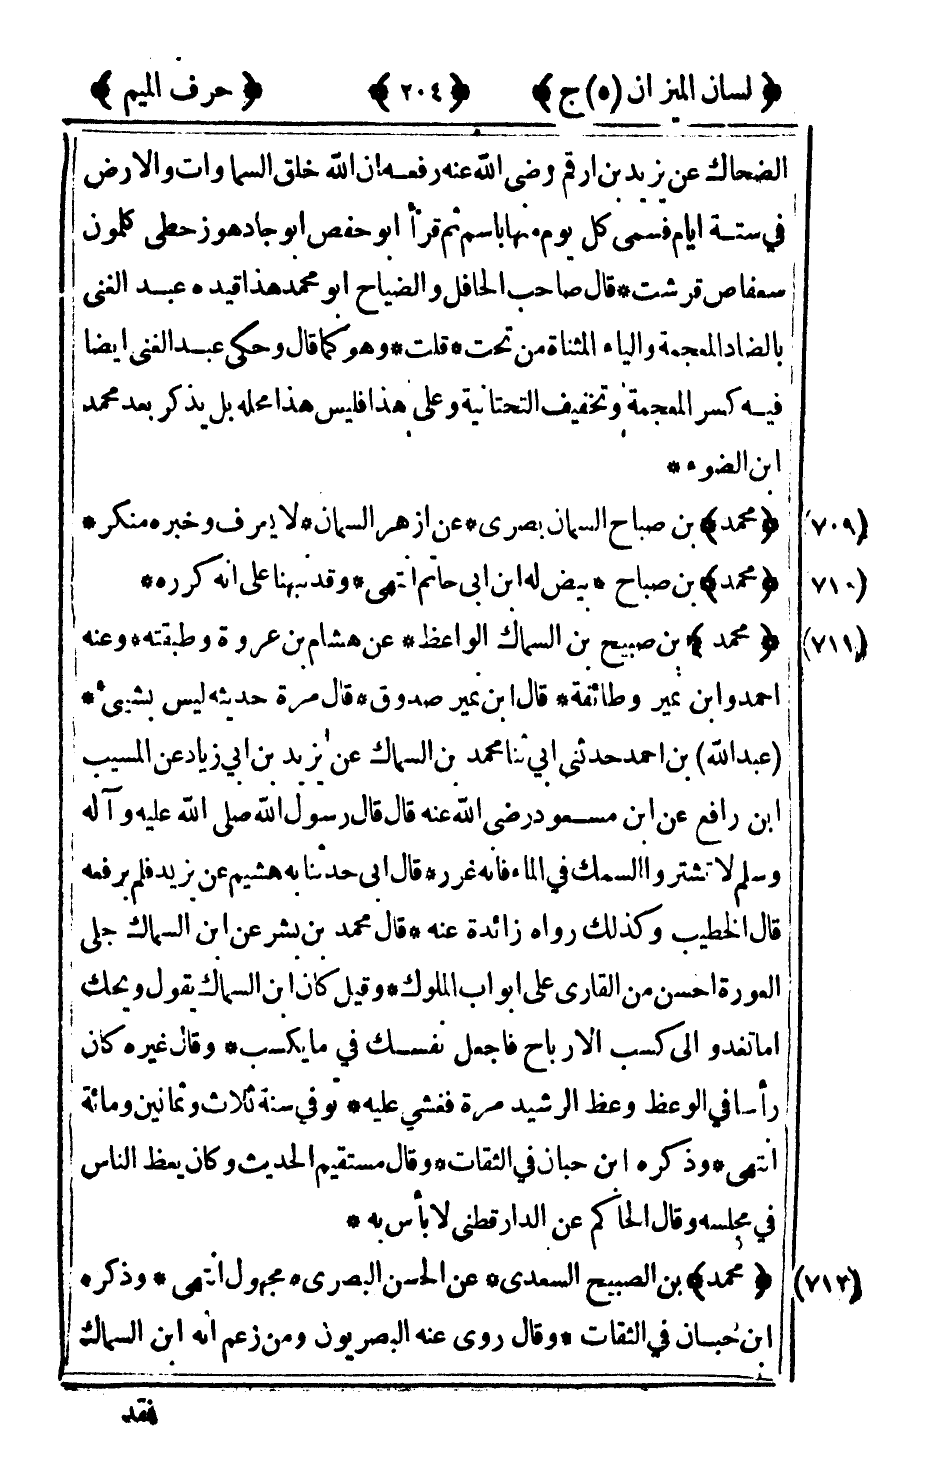 ﴿ لسان الميزان (٥) ج ﴾ ﴿ ٢٠٤ ﴾ ﴿ حرف الميم ﴾
الضحاك عن يزيد بن ارقم رضى الله عنه رفعه ان الله خلق السماوات والارض
في ستة ايام فسمى كل يوم منها باسم ثم قرأ ابو حفص ابو جاد هوز حطى كلمون
سعفاص قرشت * قال صاحب الحافل والضياح ابو محمد هذا قيده عبد الغنى
بالضاد المعجمة والياء المثناة من تحت * قلت * وهو كما قال وحكى عبد الغنى ايضا
فيه كسر المعجمة وتخفيف التحتانية وعلى هذا فليس هذا محله بل يذكر بعد محمد
ابن الضوء *
(٧٠٩) ﴿ محمد ﴾ بن صباح السمان بصرى * عن ازهر السمان * لا يعرف وخبره منكر *
(٧١٠) ﴿ محمد ﴾ بن صباح * بيض له ابن ابى حاتم انتهى * وقد نبهنا على انه كرره *
(٧١١) ﴿ محمد ﴾ بن صبيح بن السماك الواعظ * عن هشام بن عروة وطبقته * وعنه
احمد وابن نمير وطائفة * قال ابن نمير صدوق * قال مرة حديثه ليس بشيئ *
(عبد الله) بن احمد حدثنى ابي ثنا محمد بن السماك عن يزيد بن ابي زياد عن المسيب
ابن رافع عن ابن مسعود رضى الله عنه قال قال رسول الله صلى الله عليه وآله
وسلم لا تشتروا السمك في الماء فانه غرر * قال ابى حدثنا به هشيم عن يزيد فلم يرفعه
قال الخطيب وكذلك رواه زائدة عنه * قال محمد بن بشر عن ابن السماك جلى
العورة احسن من القارى على ابواب الملوك * وقيل كان ابن السماك يقول ويحك
اما تغدو الى كسب الارباح فاجعل نفسك في ما يكسب * وقال غيره كان
رأسا في الوعظ وعظ الرشيد مرة فغشي عليه * توفي سنة ثلاث وثمانين ومائة
انتهى * وذكره ابن حبان في الثقات * وقال مستقيم الحديث وكان يعظ الناس
في مجلسه وقال الحاكم عن الدارقطنى لا بأس به *
(٧١٢) ﴿ محمد ﴾ بن الصبيح السعدى * عن الحسن البصرى * مجهول انتهى * وذكره
ابن حبان في الثقات * وقال روى عنه البصريون ومن زعم انه ابن السماك
فقد